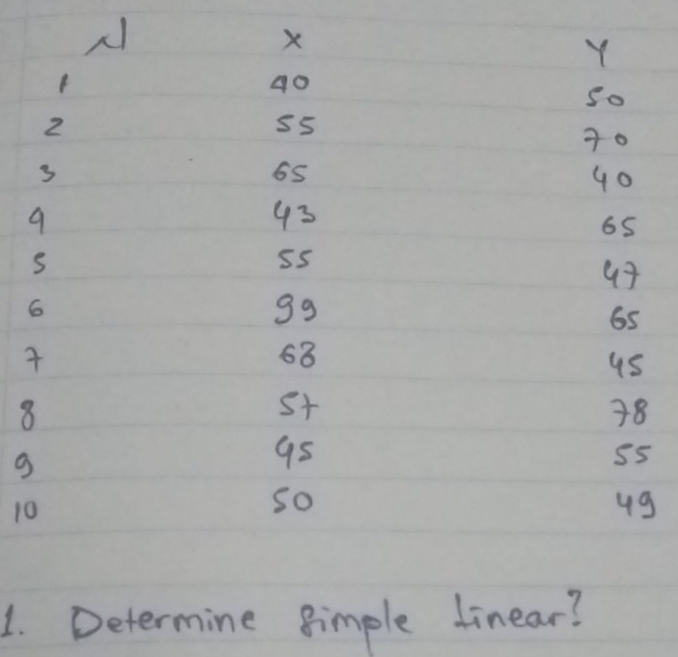 N X Y
1 40 50
2 55 70
3 65 40
4 43 65
5 55 47
6 99 65
7 68 45
8 57 78
9 45 55
10 50 49
1. Determine Simple linear?